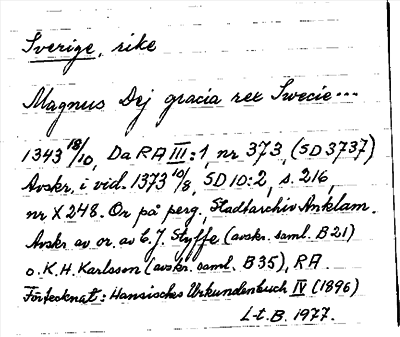 Sverige, rike
Magnus Dej gracia rex Swecie...
1343 18/10, Da RA III:1, nr 373, (SD 3737)
Avskr. i vid. 1373 10/8, SD 10:2, s. 216,
nr X 248. Or på perg., Stadtarchiv Anklam.
Avskr av or. av C.J. Styffe (avskr. saml. B 21)
o. K.H. Karlsson (avskr. saml. B 35), RA.
Förtecknat: Hansisches Urkundenbuch IV (1896)
L-t. B. 1977.